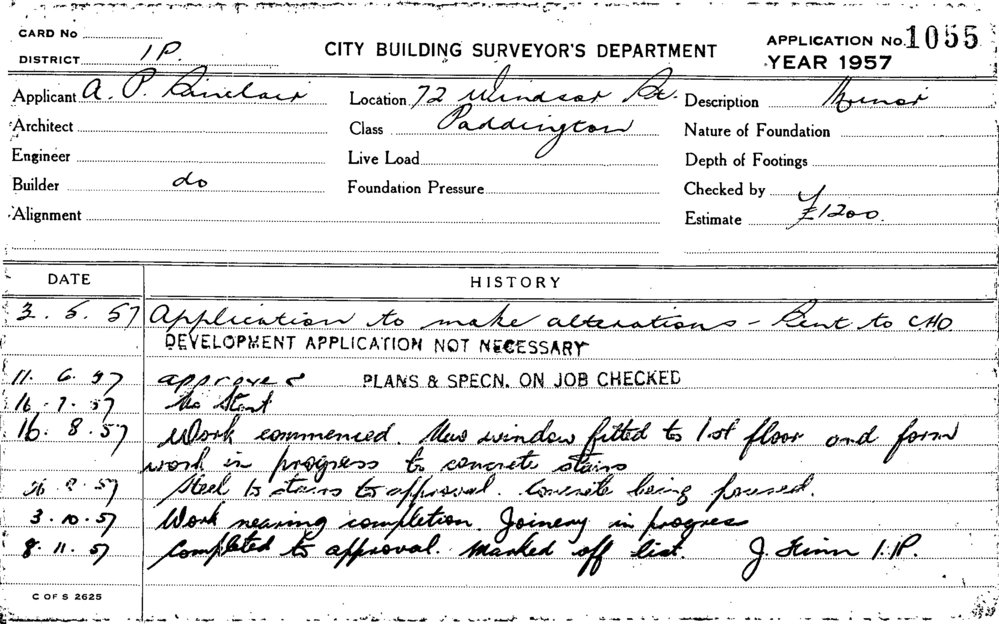 CARD No
DISTRICT 1P.
CITY BUILDING SURVEYOR'S DEPARTMENT
APPLICATION No. 1055
YEAR 1957
Applicant A. P. Sinclair
Location 72 Windsor St.
Description Minor
Architect
Class Paddington
Nature of Foundation
Engineer
Live Load
Depth of Footings
Builder do
Foundation Pressure
Checked by
Alignment
Estimate £1200.
DATE HISTORY
3. 5. 57 Application to make alterations - Sent to CHO
DEVELOPMENT APPLICATION NOT NECESSARY
11. 6. 57 approved PLANS & SPECN. ON JOB CHECKED
16. 7. 57 No Start
16. 8. 57 Work commenced. New window fitted to 1st floor and form
work in progress to concrete stairs
57 Steel to stairs to approval. Concrete being poured.
3. 10. 57 Work nearing completion. Joinery in progress
8. 11. 57 Completed to approval. Marked off list. J. Finn 1.IP.
C OF S 2625